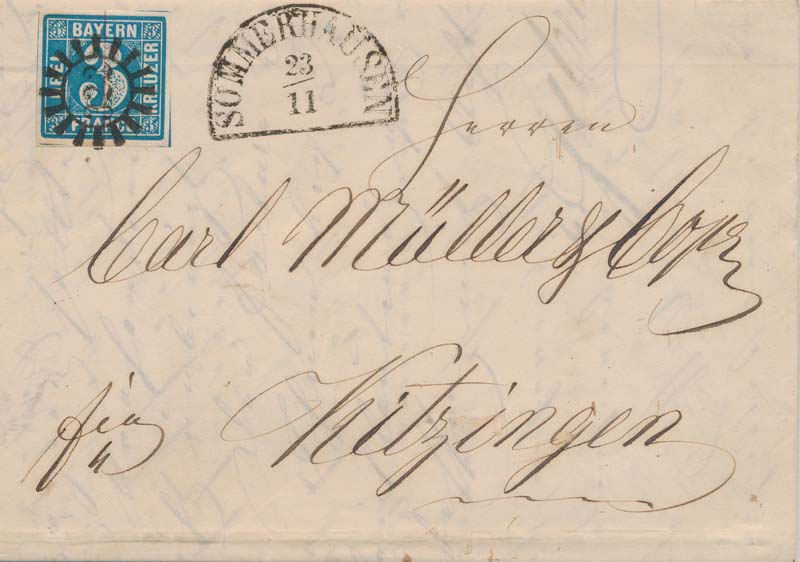 BAYERN
DREI 3 KREUZER
FRANCO
SOMMERHAUSEN
23
11
Herren
Carl Müller & Comp
Kitzingen